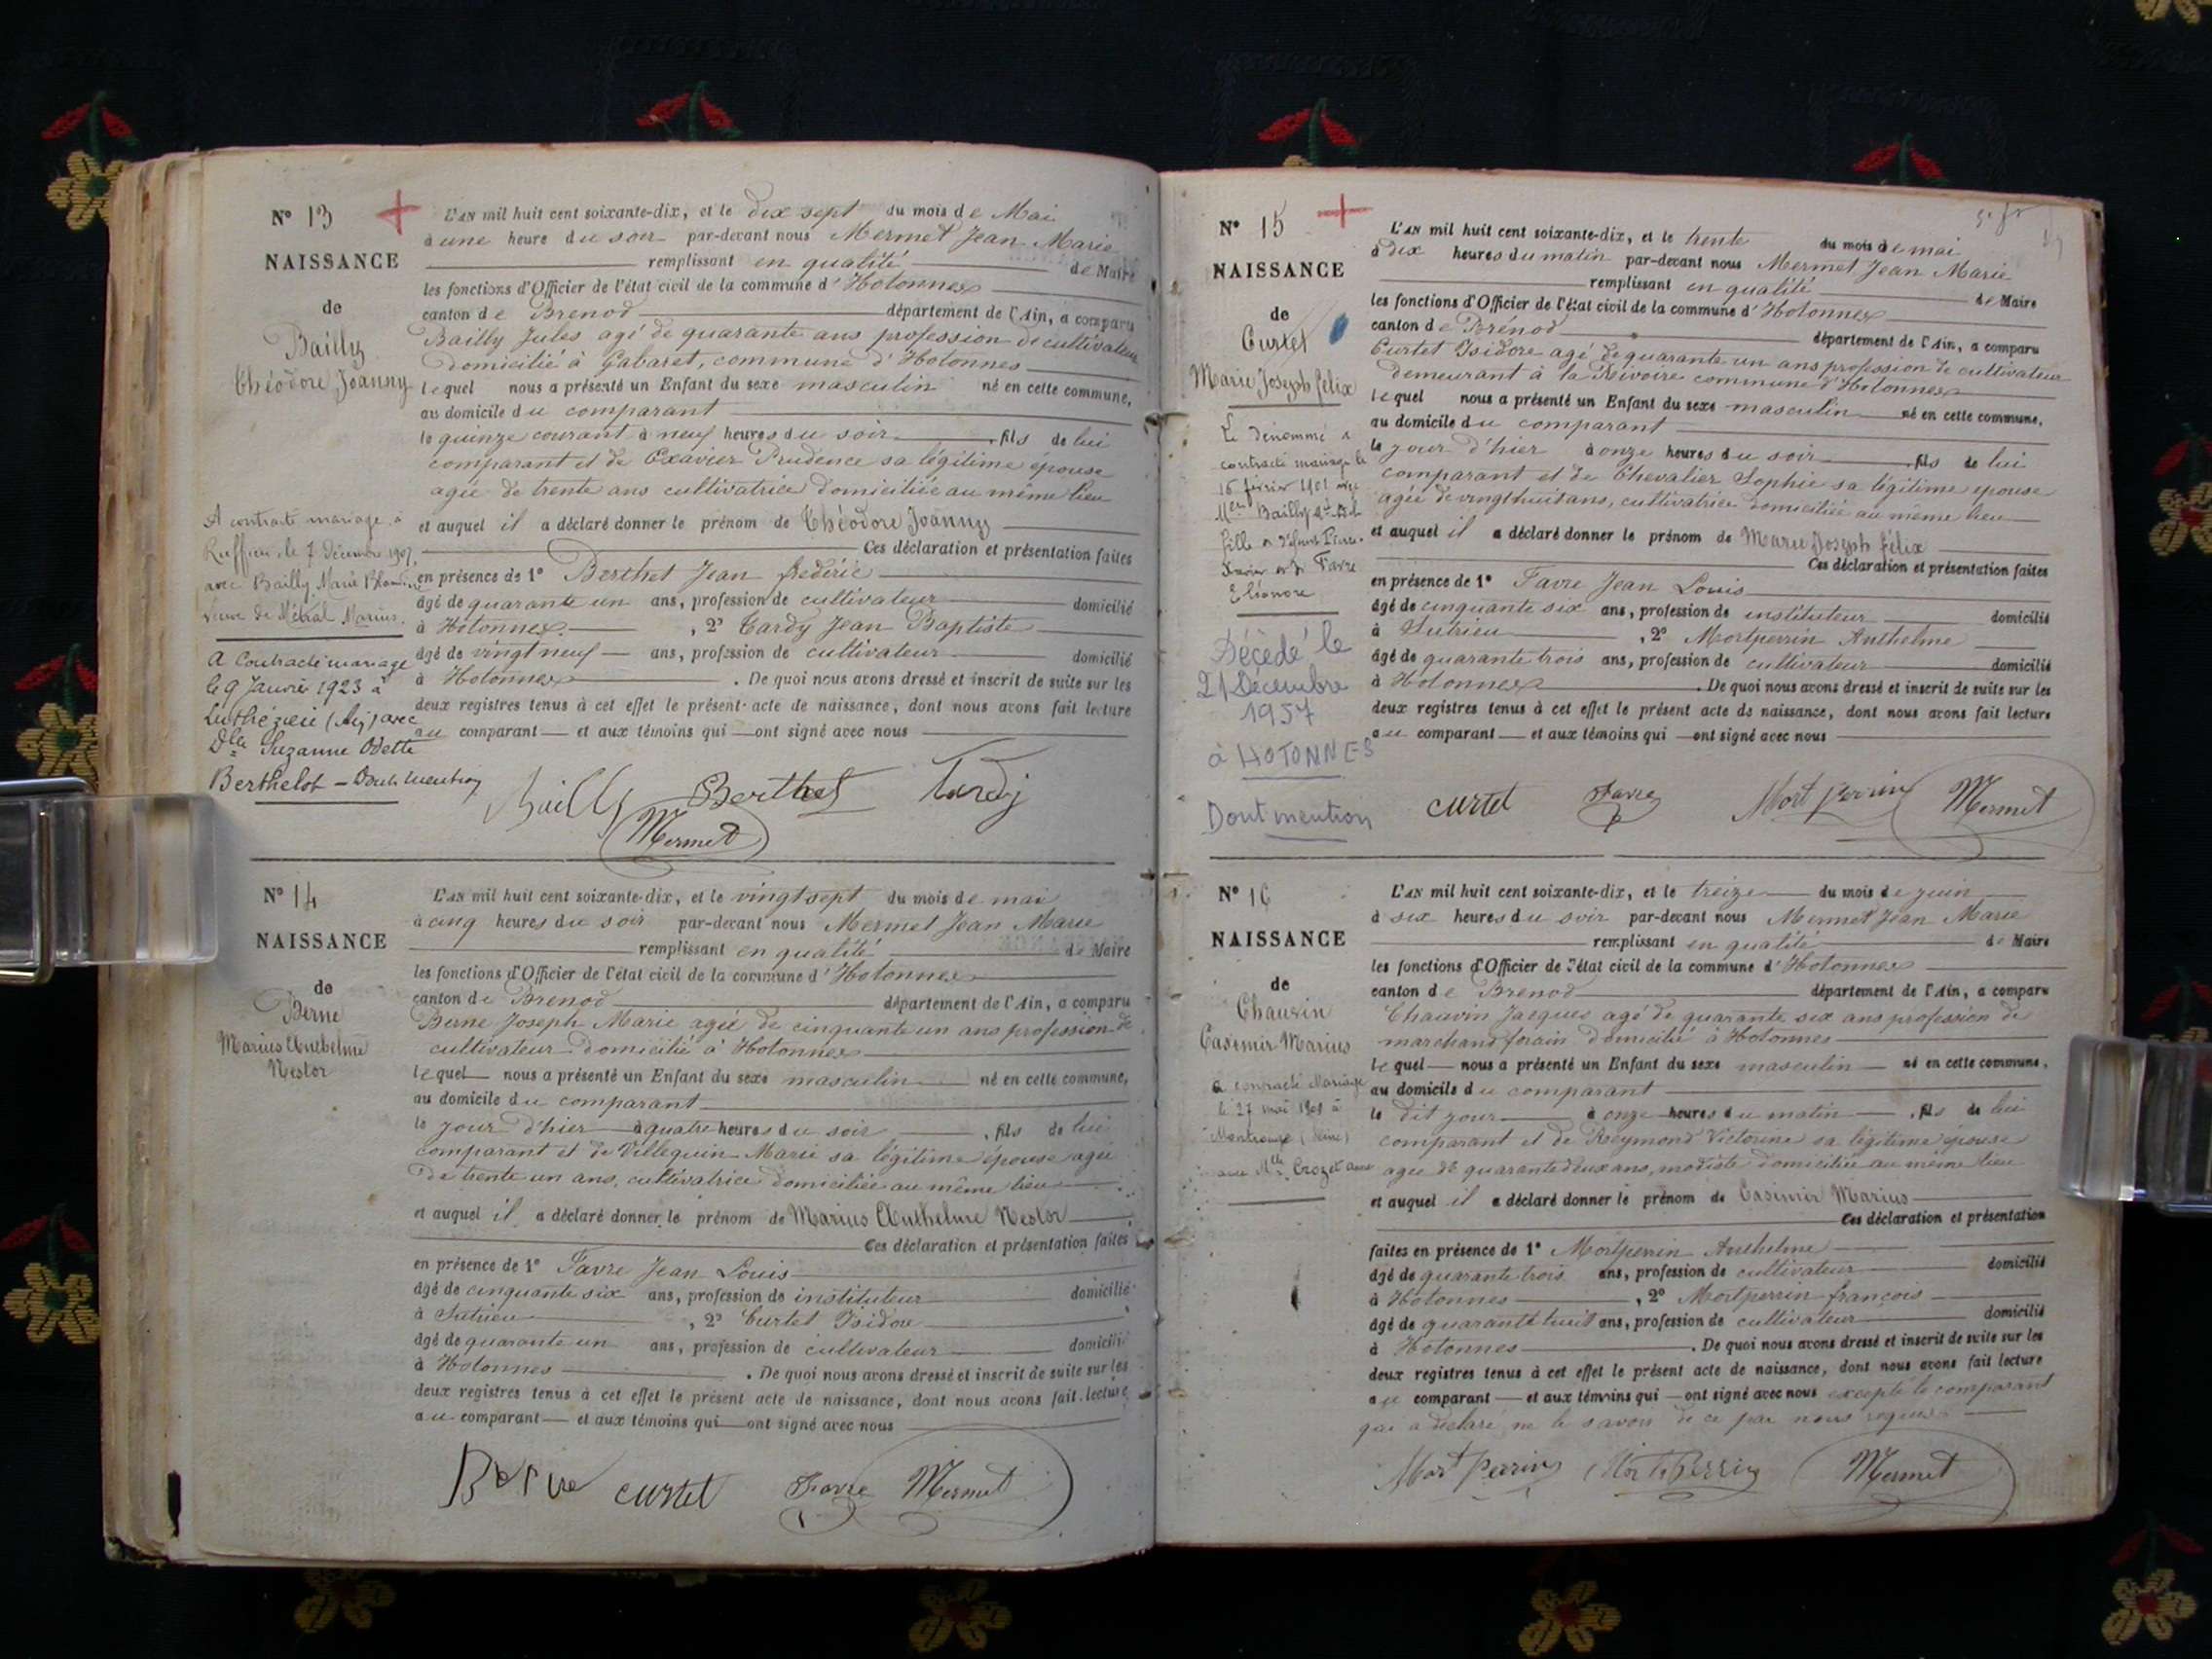 N° 13
NAISSANCE
de
Bailly
Théodore Joanny
A contracté mariage à
Ruffieu, le 7 décembre 1907,
avec Bailly Marie
Veuve de Métral Marius.
A Contracté mariage
le 9 Janvier 1923 à
(Ain) avec
Dlle Suzanne Odette
Berthelot - Dont mention
L'AN mil huit cent soixante-dix, et le dix sept du mois de Mai
à une heure du soir par-devant nous Mermet Jean Marie
remplissant en qualité de Maire
les fonctions d'Officier de l'état civil de la commune d'Hotonnes
canton de Brenod département de l'Ain, a comparu
Bailly Jules agé de quarante ans profession de cultivateur
domicilié à Gabaret, commune d'Hotonnes
lequel nous a présenté un Enfant du sexe masculin né en cette commune,
au domicile du comparant
le quinze courant à neuf heures du soir, fils de lui
comparant et de Exavier Prudence sa légitime épouse
agée de trente ans cultivatrice domiciliée au même lieu
et auquel il a déclaré donner le prénom de Théodore Joanny
Ces déclaration et présentation faites
en présence de 1° Berthet Jean frédéric
âgé de quarante un ans, profession de cultivateur domicilié
à Hotonnes, 2° Tardy Jean Baptiste
âgé de vingt neuf ans, profession de cultivateur domicilié
à Hotonnes. De quoi nous avons dressé et inscrit de suite sur les
deux registres tenus à cet effet le présent acte de naissance, dont nous avons fait lecture
au comparant et aux témoins qui ont signé avec nous
Bailly Berthet Tardy
Mermet
N° 14
NAISSANCE
de
Berne
Marius Anthelme
Nestor
L'AN mil huit cent soixante-dix, et le vingt sept du mois de mai
à cinq heures du soir par-devant nous Mermet Jean Marie
remplissant en qualité de Maire
les fonctions d'Officier de l'état civil de la commune d'Hotonnes
canton de Brenod département de l'Ain, a comparu
Berne Joseph Marie agé de cinquante un ans profession de
cultivateur domicilié à Hotonnes
lequel nous a présenté un Enfant du sexe masculin né en cette commune,
au domicile du comparant
le jour d'hier à quatre heures du soir, fils de lui
comparant et de Villequin Marie sa légitime épouse agée
de trente un ans, cultivatrice domiciliée au même lieu
et auquel il a déclaré donner le prénom de Marius Anthelme Nestor
Ces déclaration et présentation faites
en présence de 1° Favre Jean Louis
âgé de cinquante six ans, profession de instituteur domicilié
à Sutrieu, 2° Curtet Isidore
âgé de quarante un ans, profession de cultivateur domicilié
à Hotonnes. De quoi nous avons dressé et inscrit de suite sur les
deux registres tenus à cet effet le présent acte de naissance, dont nous avons fait lecture
au comparant et aux témoins qui ont signé avec nous
Berne curtet Favre Mermet
N° 15
NAISSANCE
de
Curtet
Marie Joseph félix
Le dénommé a
contracté mariage le
16 février 1901 avec
Bailly
fille de défunt Pierre
Xavier et de Favre
Eléonore
Décédé le
21 Décembre
1957
à HOTONNES
Dont mention
L'AN mil huit cent soixante-dix, et le trente du mois de mai
à dix heures du matin par-devant nous Mermet Jean Marie
remplissant en qualité de Maire
les fonctions d'Officier de l'état civil de la commune d'Hotonnes
canton de Brénod département de l'Ain, a comparu
Curtet Isidore agé de quarante un ans profession de cultivateur
demeurant à la Rivoire commune d'Hotonnes
lequel nous a présenté un Enfant du sexe masculin né en cette commune,
au domicile du comparant
le jour d'hier à onze heures du soir, fils de lui
comparant et de Chevalier Sophie sa légitime épouse
agée de vingt huit ans, cultivatrice domiciliée au même lieu
et auquel il a déclaré donner le prénom de Marie Joseph félix
Ces déclaration et présentation faites
en présence de 1° Favre Jean Louis
âgé de cinquante six ans, profession de instituteur domicilié
à Sutrieu, 2° Mortperrin Anthelme
âgé de quarante trois ans, profession de cultivateur domicilié
à Hotonnes. De quoi nous avons dressé et inscrit de suite sur les
deux registres tenus à cet effet le présent acte de naissance, dont nous avons fait lecture
au comparant et aux témoins qui ont signé avec nous
curtet Favre Mort perrin Mermet
N° 16
NAISSANCE
de
Chauvin
Casimir Marius
a contracté Mariage
le 27 mai 1901 à
Montrouge (Seine)
avec Mlle Crozet
L'AN mil huit cent soixante-dix, et le treize du mois de juin
à six heures du soir par-devant nous Mermet Jean Marie
remplissant en qualité de Maire
les fonctions d'Officier de l'état civil de la commune d'Hotonnes
canton de Brenod département de l'Ain, a comparu
Chauvin Jacques agé de quarante six ans profession de
marchand forain domicilié à Hotonnes
lequel nous a présenté un Enfant du sexe masculin né en cette commune,
au domicile du comparant
le dit jour à onze heures du matin, fils de lui
comparant et de Reymond Victorine sa légitime épouse
agée de quarante deux ans, modiste domiciliée au même lieu
et auquel il a déclaré donner le prénom de Casimir Marius
Ces déclaration et présentation
faites en présence de 1° Mortperrin Anthelme
âgé de quarante trois ans, profession de cultivateur domicilié
à Hotonnes, 2° Mortperrin françois
âgé de quarante huit ans, profession de cultivateur domicilié
à Hotonnes. De quoi nous avons dressé et inscrit de suite sur les
deux registres tenus à cet effet le présent acte de naissance, dont nous avons fait lecture
au comparant et aux témoins qui ont signé avec nous excepté le comparant
qui a déclaré ne le savoir de ce par nous requis
Mort perrin Mort Perrin Mermet